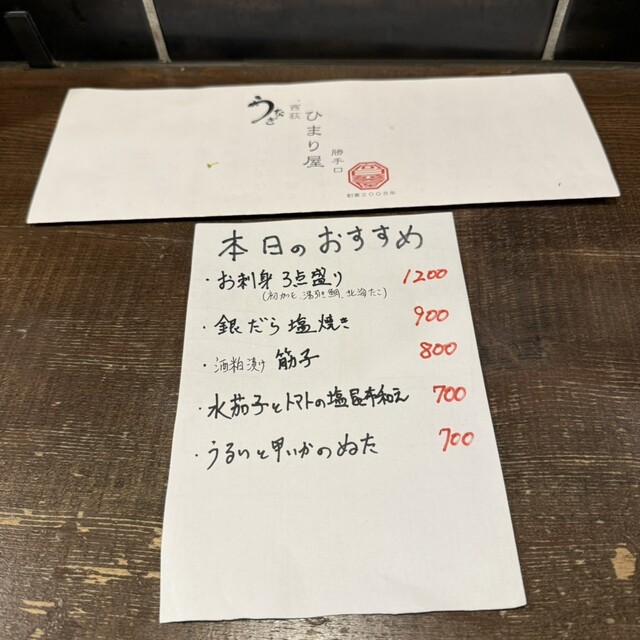 うなぎ
西荻
ひまり屋
勝手口
創業2008年
本日のおすすめ
・お刺身 3点盛り 1200
(初カツオ、湯引き鯛、北海たこ)
・銀だら塩焼き 900
・酒粕漬け 筋子 800
・水茄子とトマトの塩昆布和え 700
・うるいと甲いかのぬた 700